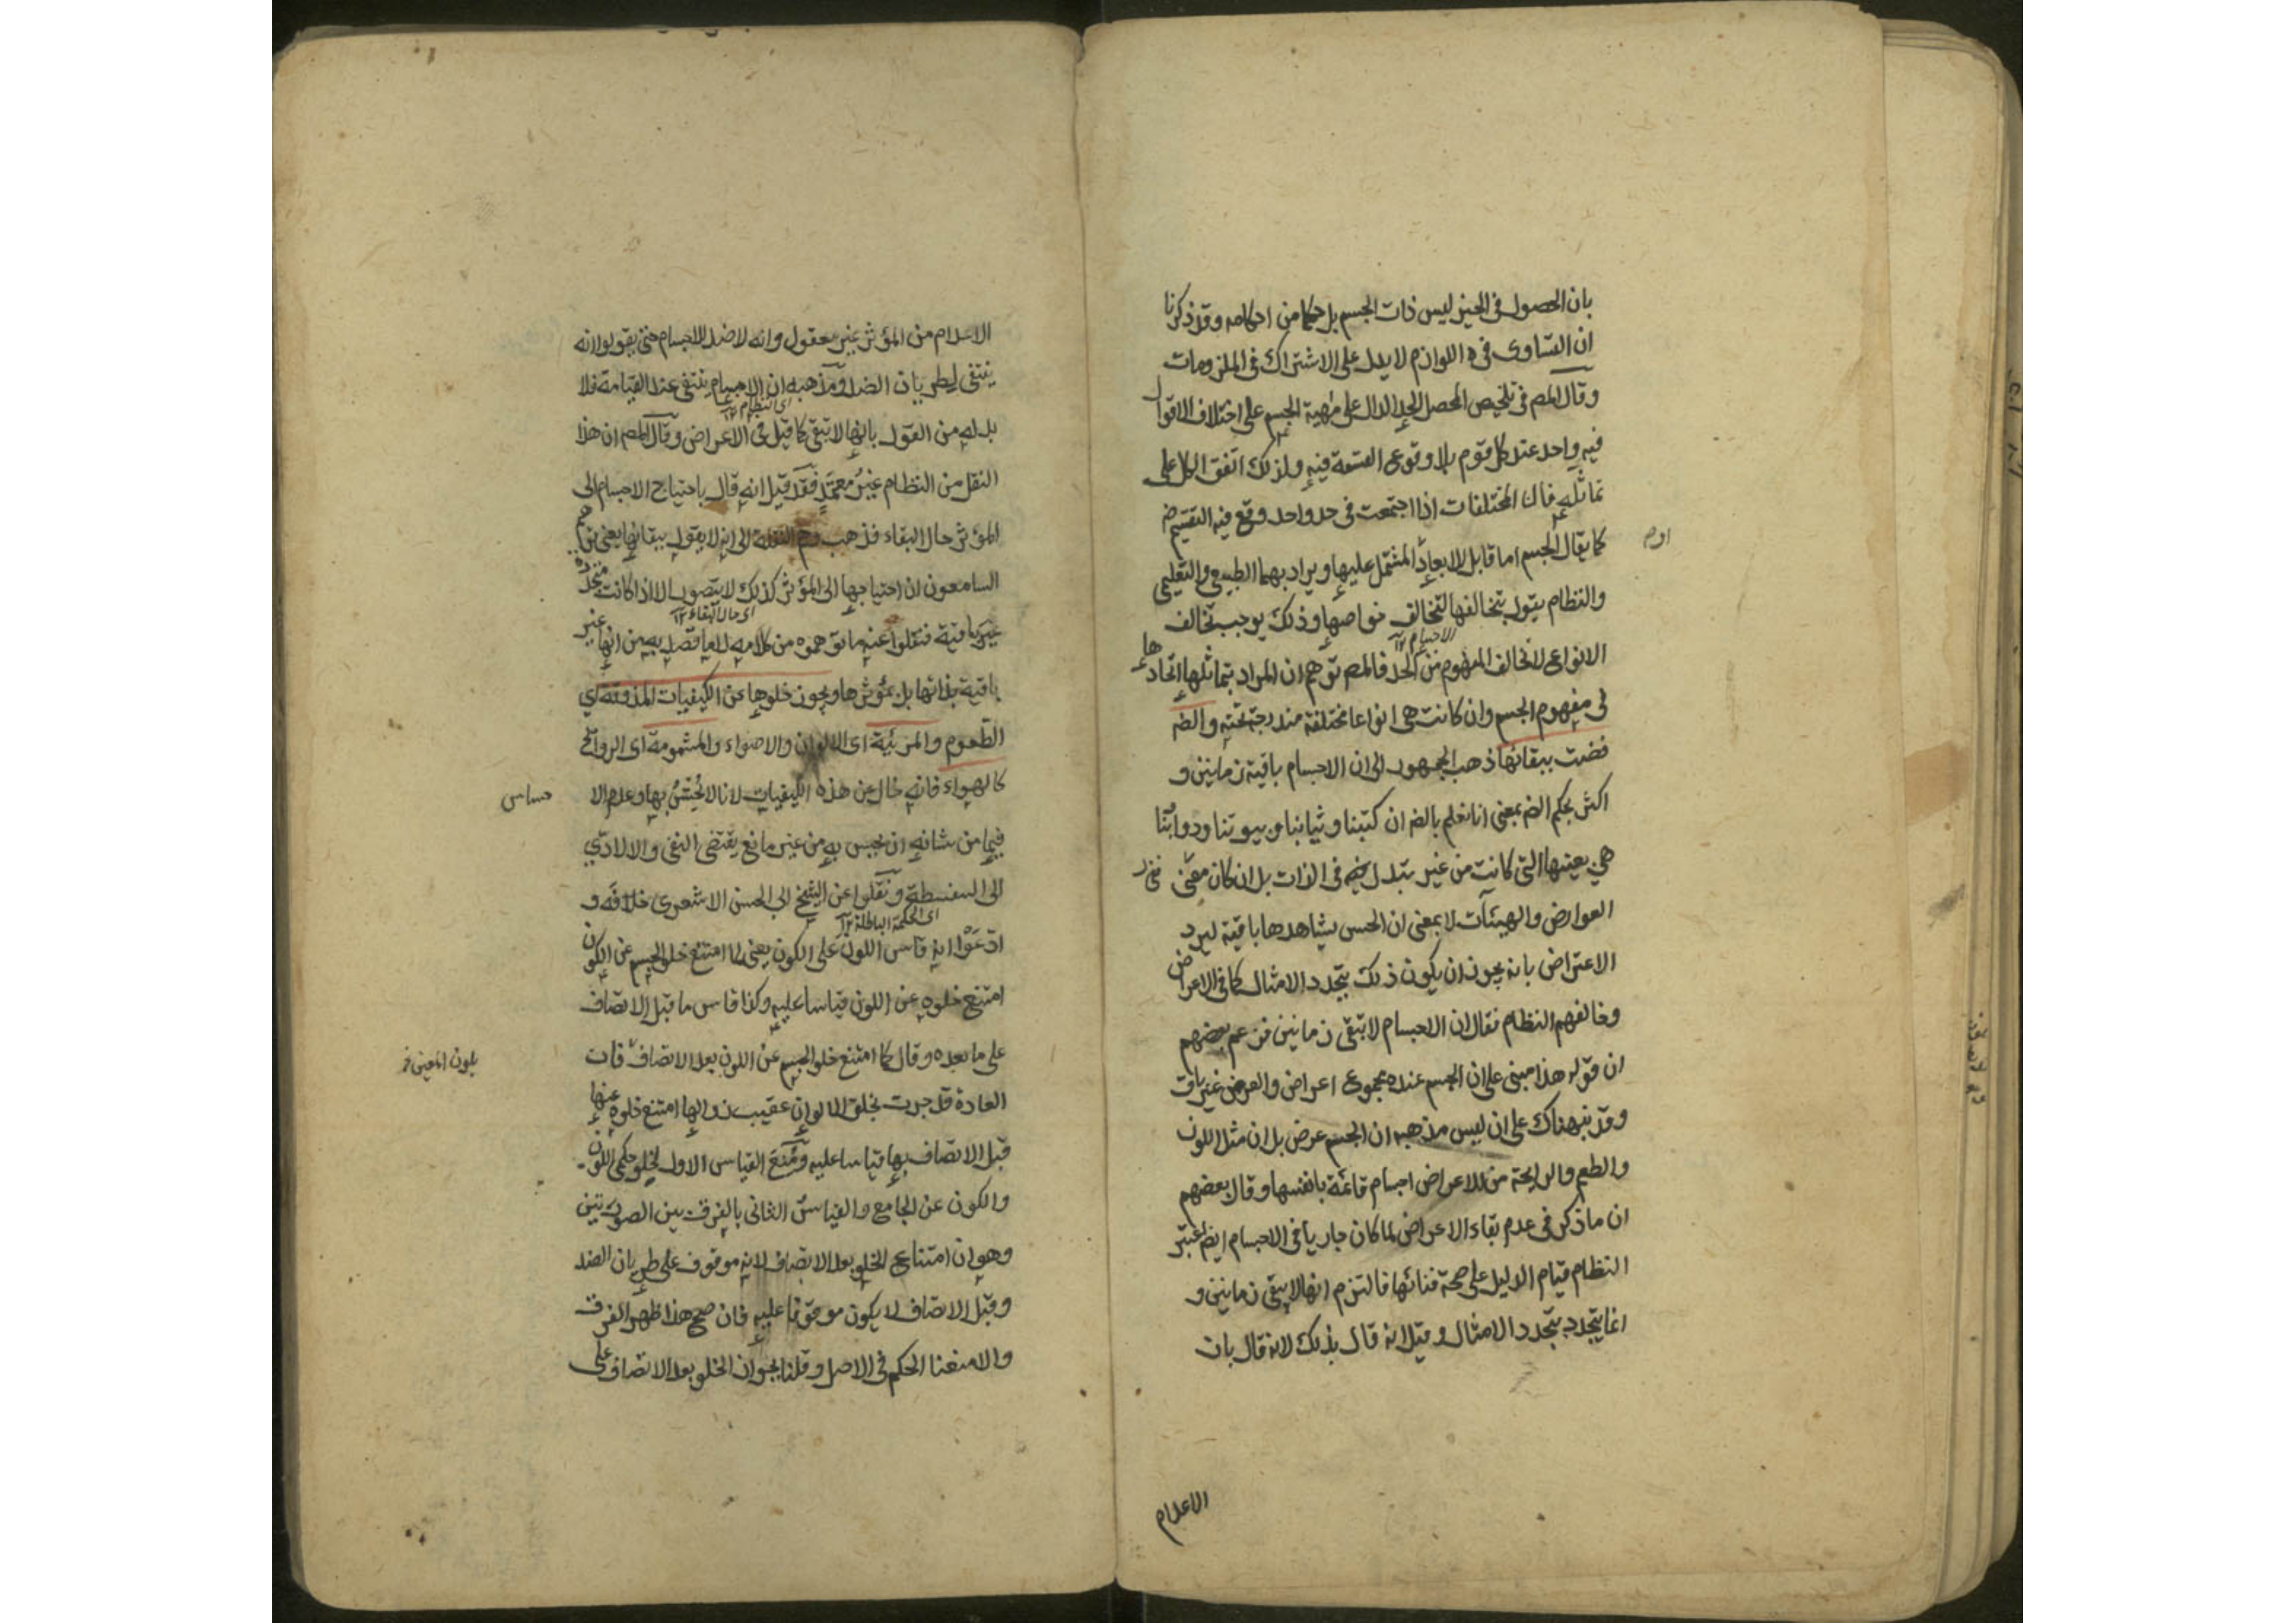 بان الحصول فى الحيز ليس ذات الجسم بل حكما من احكامه وقد ذكرنا
ان التساوى فى اللوازم لا يدل على الاشتراك فى الملزومات
وقال المصم فى تلخيص المحصل الحد الدال على مهية الجسم على اختلاف الاقوال
فيه واحد عند كل قوم بلا وقوع القسمة فيه ولذلك اتفق الكل على
تماثله فان المختلفات اذا اجتمعت فى حد واحد وقع فيه التقسيم ضم
كما يقال الجسم اما قابل للابعاد المشتمل عليها ويراد بهما الطبيعى والتعليمى
اوم
والنظام يقول بتخالفها لتخالف خواصها وذلك يوجب تخالف
الاجسام ١٢
الانواع لا تخالف المفهوم من الحد فالمصم توهم ان المراد بتماثلها اتحادها
فى مفهوم الجسم وان كانت هى انواعا مختلفة مندرجة تحته والضه
قضت ببقائها ذهب الجمهور الى ان الاجسام باقية زمانين و
اكثر بحكم الضه بمعنى انا نعلم بالضه ان كتبنا وثيابنا وبيوتنا ودوابنا
هى بعينها التى كانت من غير تبدل فى الذات بل ان كان مفى
العوارض والهيئآت لا بمعنى ان الحس يشاهدها باقية ليرد
الاعتراض بانه يجوز ان يكون ذلك بتجدد الامثال كما فى الاعراض
وخالفهم النظام فقال ان الاجسام لا تبقى زمانين فزعم بعضهم
ان قوله هذا مبنى على ان الجسم عنده مجموع اعراض والعرض غير باق
وقد نبهناك على ان ليس مذهبه ان الجسم عرض بل ان مثل اللون
والطعم والرايحة من الاعراض اجسام قائمة بانفسها وقال بعضهم
ان ما ذكر فى عدم بقاء الاعراض لما كان جاريا فى الاجسام ايضم اعتبر
النظام قيام الدليل على صحة فنائها فالتزم انها لا يبقى زمانين و
انما يتجدد بتجدد الامثال وقيل انه قال بذلك لانه قال بان
الاعدام
الاعدام من المؤثر غير معقول وانه لا ضد للاجسام حتى يقولوا انه
ينتفى لطريان الضد ومذهبه ان الاجسام ينتفى عند القيامة فلا
اى النظام ١٢
بد له من القول بانها لا تبقى كما قيل فى الاعراض وقال المصم ان هذا
النقل من النظام غير معتمد فقد قيل انه قال باحتياج الاجسام الى
المؤثر حال البقاء فذهب وهم النقلة الى انه لا يقول ببقائها يعنى توهم
السامعون ان احتياجها الى المؤثر كذلك لا يتصور الا اذا كانت متجددة
اى حال البقاء ١٢
غير باقية فنقلوا عنه ما توهموه من كلامه لا ما قصد به من انها غير
باقية بذاتها بل بمؤثرها ويجوز خلوها عن الكيفيات المذوقة اى
الطعوم والمرئية اى الالوان والاضواء والمشمومة اى الروائح
كالهواء فانه خال عن هذه الكيفيات لانا لا نحس بها وعدم الا
حساس
فيما من شانه ان يحس به من غير مانع يقتضى النفى والا لادى
الى السفسطة ونقلوا عن الشيخ ابى الحسن الاشعرى خلافه و
اى الحكمة الباطلة ١٢
ادعوا انه قاس اللون على الكون يعنى لما امتنع خلو الجسم عن الكون
امتنع خلوه عن اللون قياسا عليه وكذا قاس ما قبل الاتصاف
على ما بعده وقال كما امتنع خلو الجسم عن اللون بعد الاتصاف فان
بلون المعين
العادة قد جرت بخلق الالوان عقيب زوالها امتنع خلوه عنها
قبل الاتصاف بها قياسا عليه ومنع القياس الاول لخلو حكمى اللون
والكون عن الجامع والقياس الثانى بالفرق بين الصورتين
وهو ان امتناع الخلو بعد الاتصاف لانه موقوف على طريان الضد
وقبل الاتصاف لا يكون موقوفا عليه فان صح هذا ظهر الفرق
والا منعنا الحكم فى الاصل وقلنا بجواز الخلو بعد الاتصاف على